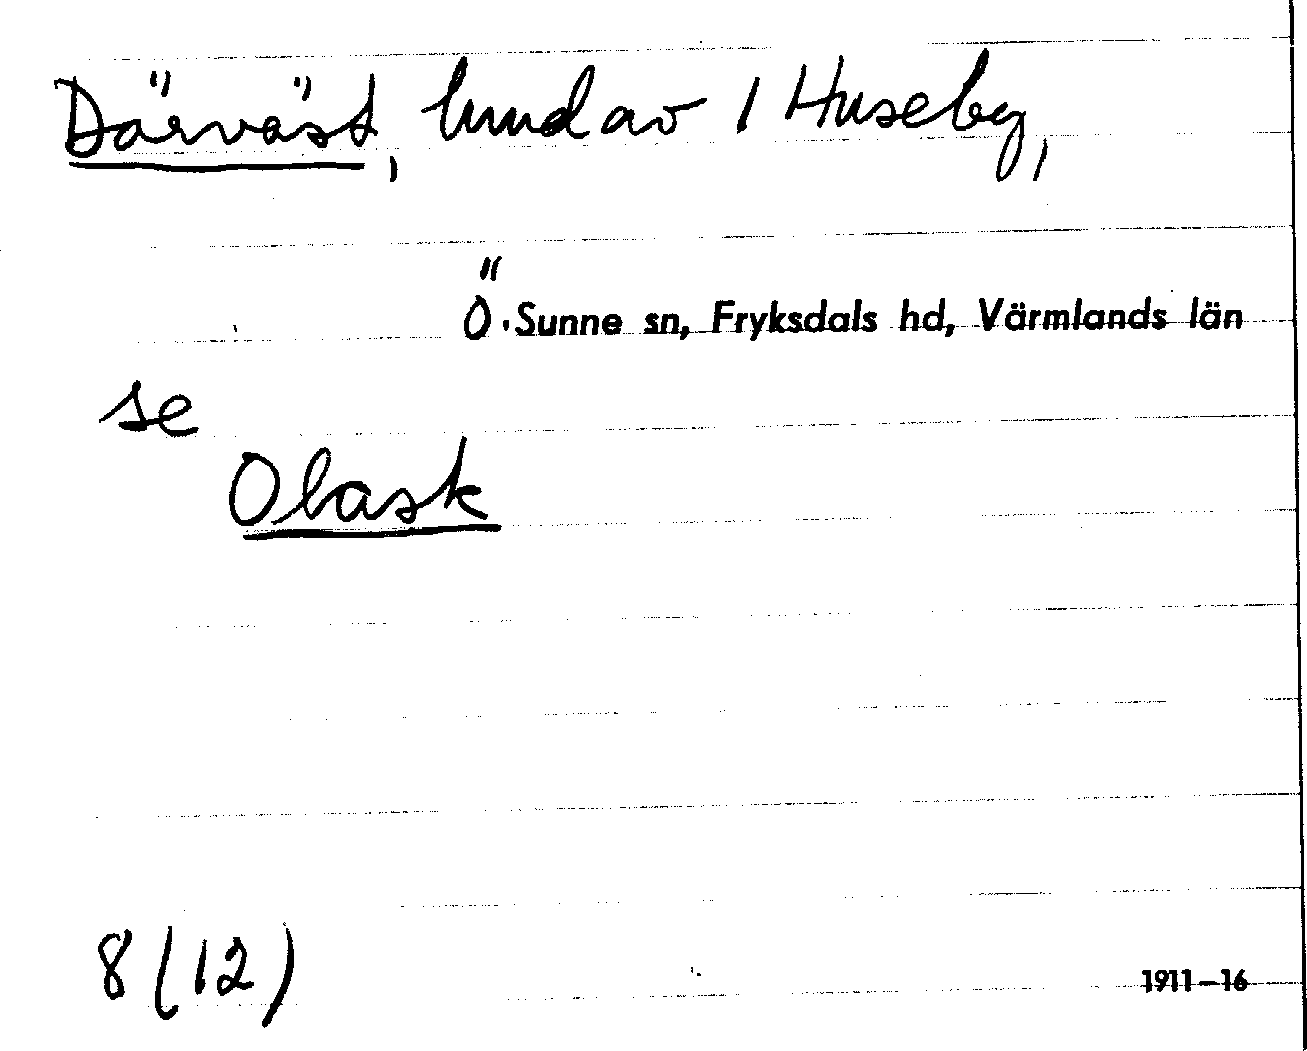 Därväst, hmd av 1 Huseby,
Ö. Sunne sn, Fryksdals hd, Värmlands län
se
Olask
8 (12)
1911–16